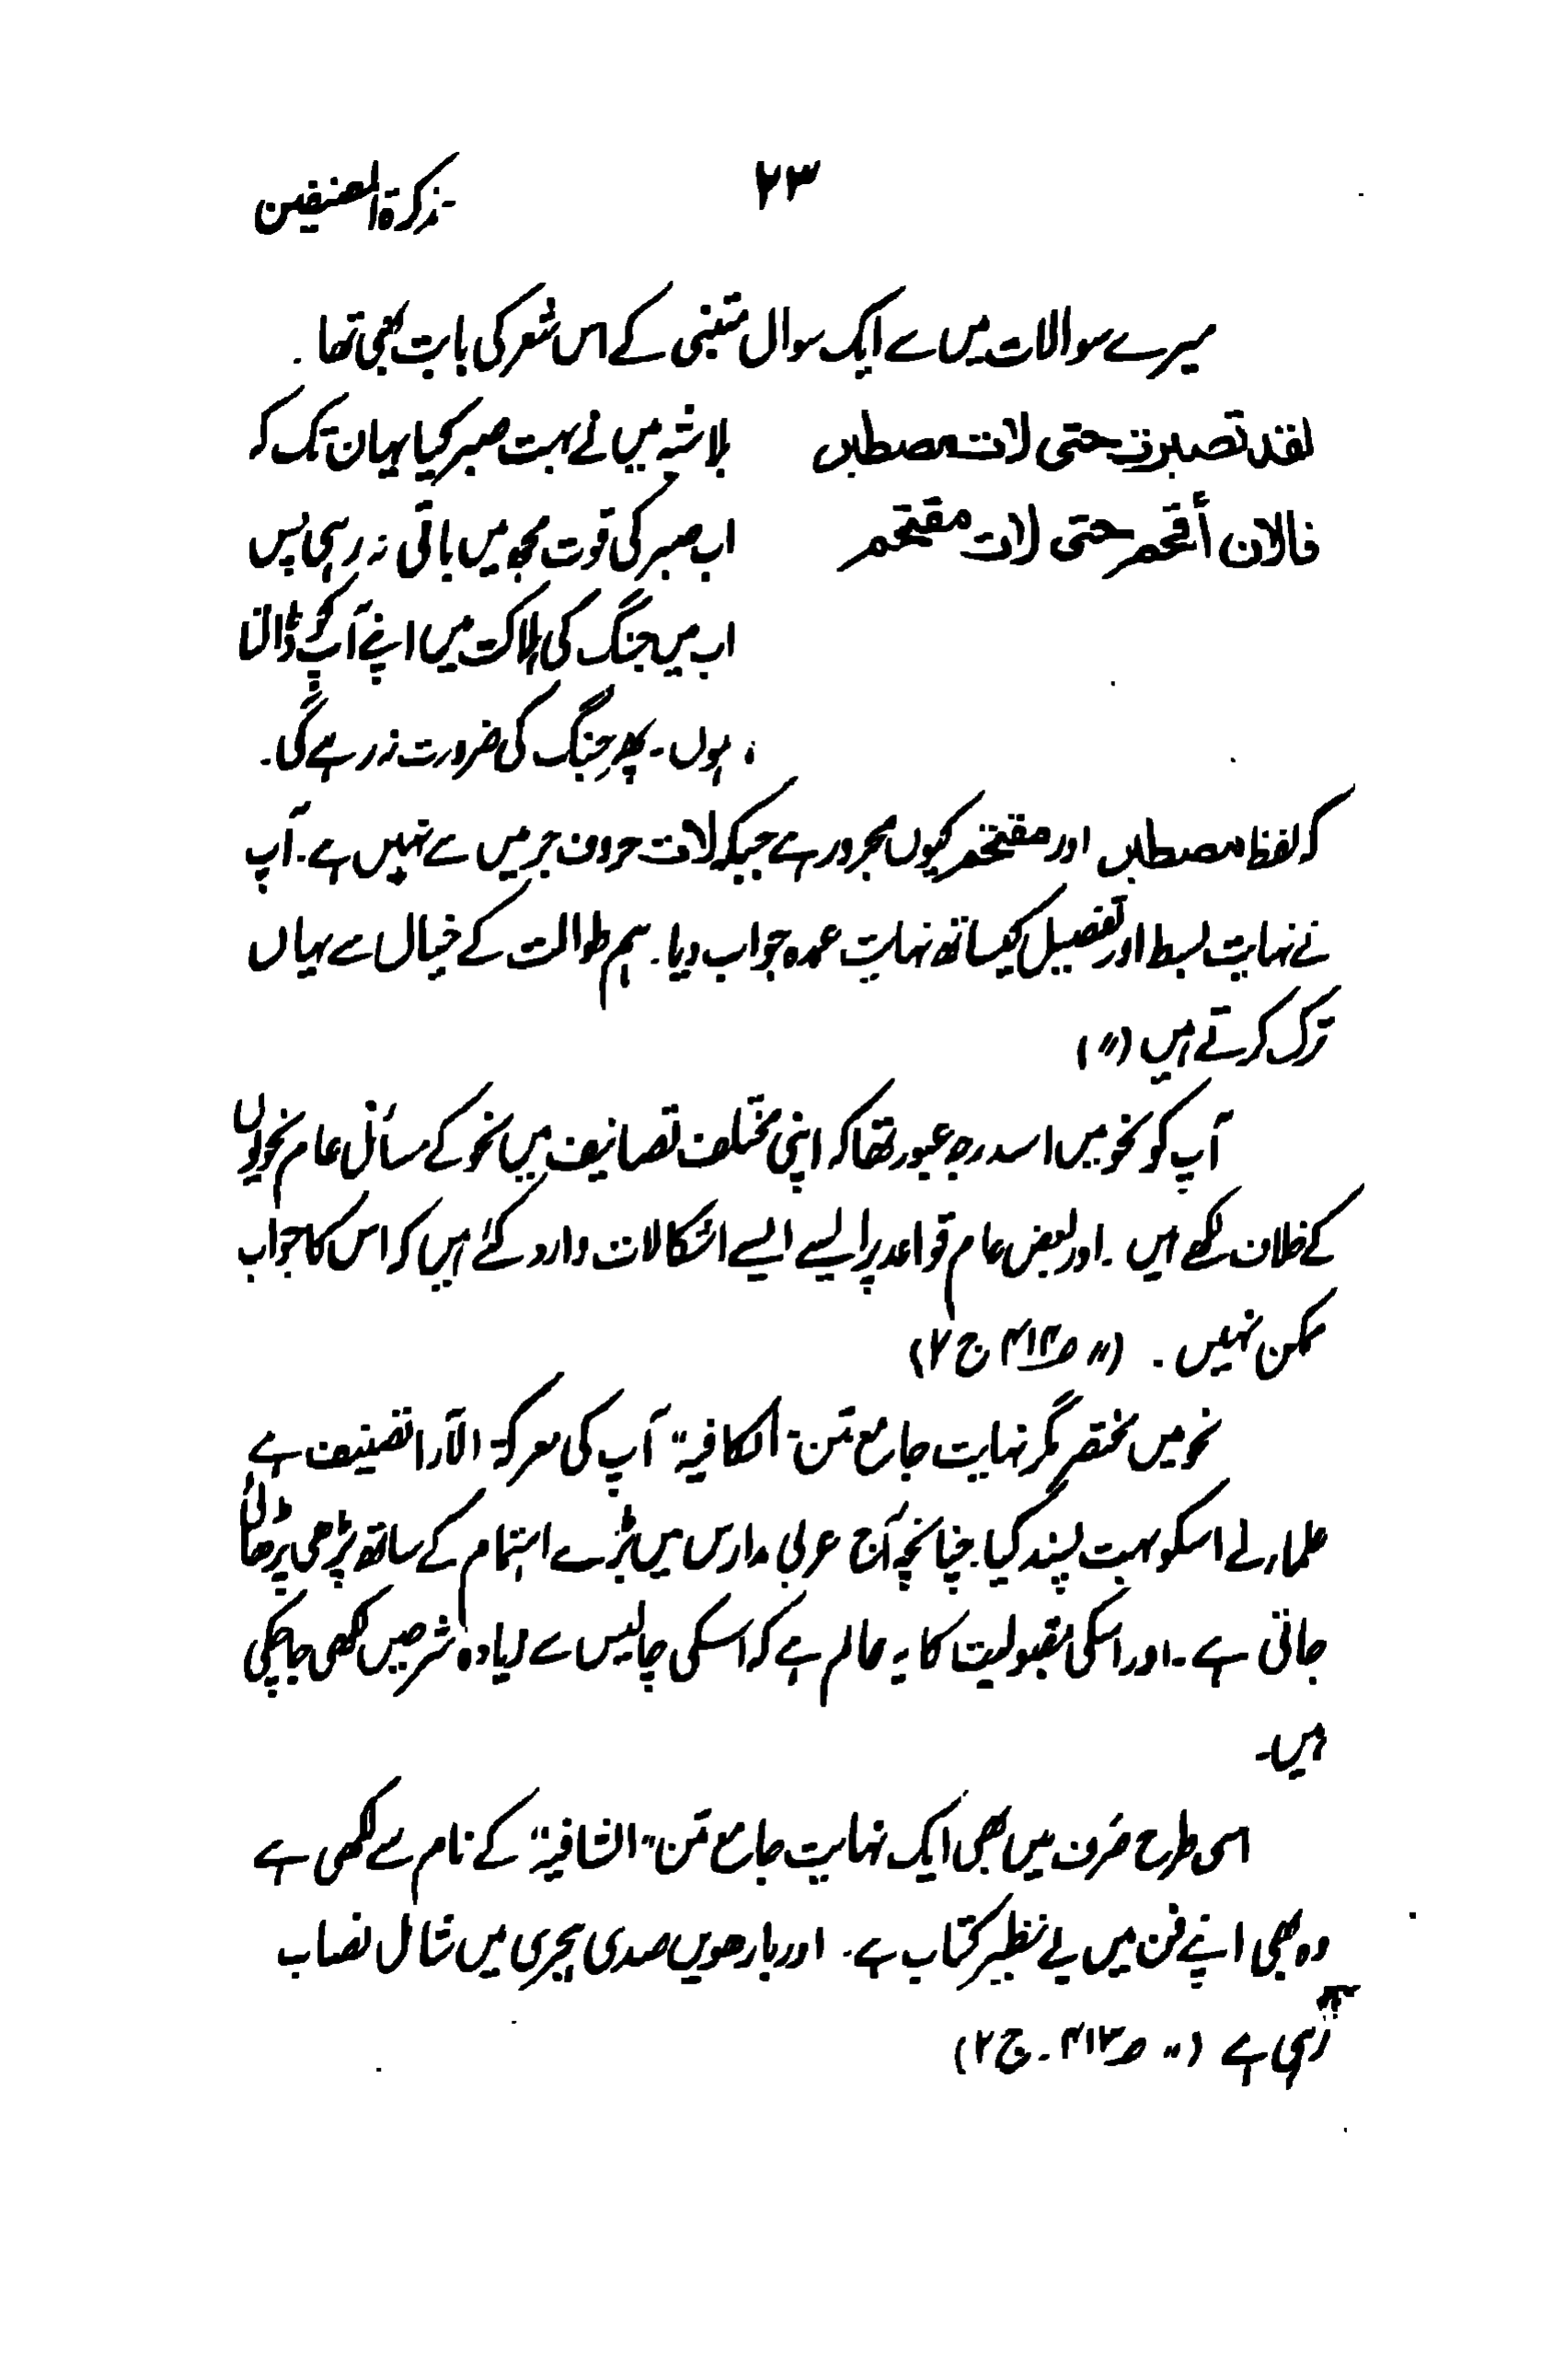 ۷۳
تذکرۃ المصنفین
میرے سوالات میں سے ایک سوال متنبی کے اس شعر کی بابت بھی تھا۔
لقد تصبرت حتی لات مصطبر بلاشبہ میں نے بہت صبر کیا یہاں تک کہ
فالان أقحم حتی لات مقتحم اب صبر کی قوت مجھ میں باقی نہ رہی پس
اب میں جنگ کی ہلاکت میں اپنے آپ کو ڈالتا
ہوں۔ پھر جنگ کی ضرورت نہ رہے گی۔
کہ لفظ مصطبر اور مقتحم کیوں مجرور ہے جبکہ لات حروف جر میں سے نہیں ہے۔ آپ
نے نہایت بسط اور تفصیل کیساتھ نہایت عمدہ جواب دیا۔ ہم طوالت کے خیال سے یہاں
ترک کرتے ہیں (〃)
آپ کو نحو میں اسدرجہ عبور تھا کہ اپنی مختلف تصانیف میں نحو کے مسائل عام نحویوں
کے خلاف لکھے ہیں۔ اور بعض عام قواعد پر ایسے ایسے اشکالات وارد کئے ہیں کہ اس کا جواب
ممکن نہیں۔ (〃 ص۴۱۴ ج ۲)
نحو میں مختصر مگر نہایت جامع متن "الکافیہ" آپ کی معرکۃ الآرا تصنیف ہے
علماء نے اسکو بہت پسند کیا۔ چنانچہ آج عربی مدارس میں بڑے اہتمام کے ساتھ پڑھی پڑھائی
جاتی ہے۔ اور اسکی مقبولیت کا یہ عالم ہے کہ اسکی چالیس سے زیادہ شرحیں لکھی جا چکی
ہیں۔
اسی طرح صرف میں بھی ایک نہایت جامع متن "الشافیہ" کے نام سے لکھی ہے
وہ بھی اپنے فن میں بے نظیر کتاب ہے۔ اور بارھویں صدی ہجری میں شامل نصاب
رہی ہے (〃 ص۴۱۳۔ ج ۲)